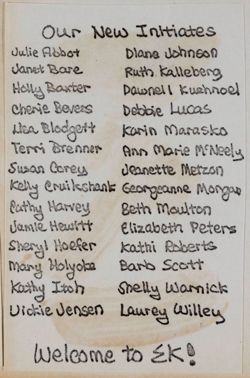 Our New Initiates
Julie Abbot
Janet Bare
Holly Baxter
Cherie Bevers
Lisa Blodgett
Terri Brenner
Susan Corey
Kelly Cruikshank
Cathy Harvey
Jamie Hewitt
Sheryl Hoefer
Mary Holyoke
Kathy Itoh
Vickie Jensen
Diane Johnson
Ruth Kalleberg
Dawnell Kuehnoel
Debbie Lucas
Karin Marasko
Ann Marie McNeely
Jeanette Metzon
Georgeanne Morgan
Beth Moulton
Elizabeth Peters
Kathi Roberts
Barb Scott
Shelly Warnick
Laurey Willey
Welcome to EK!